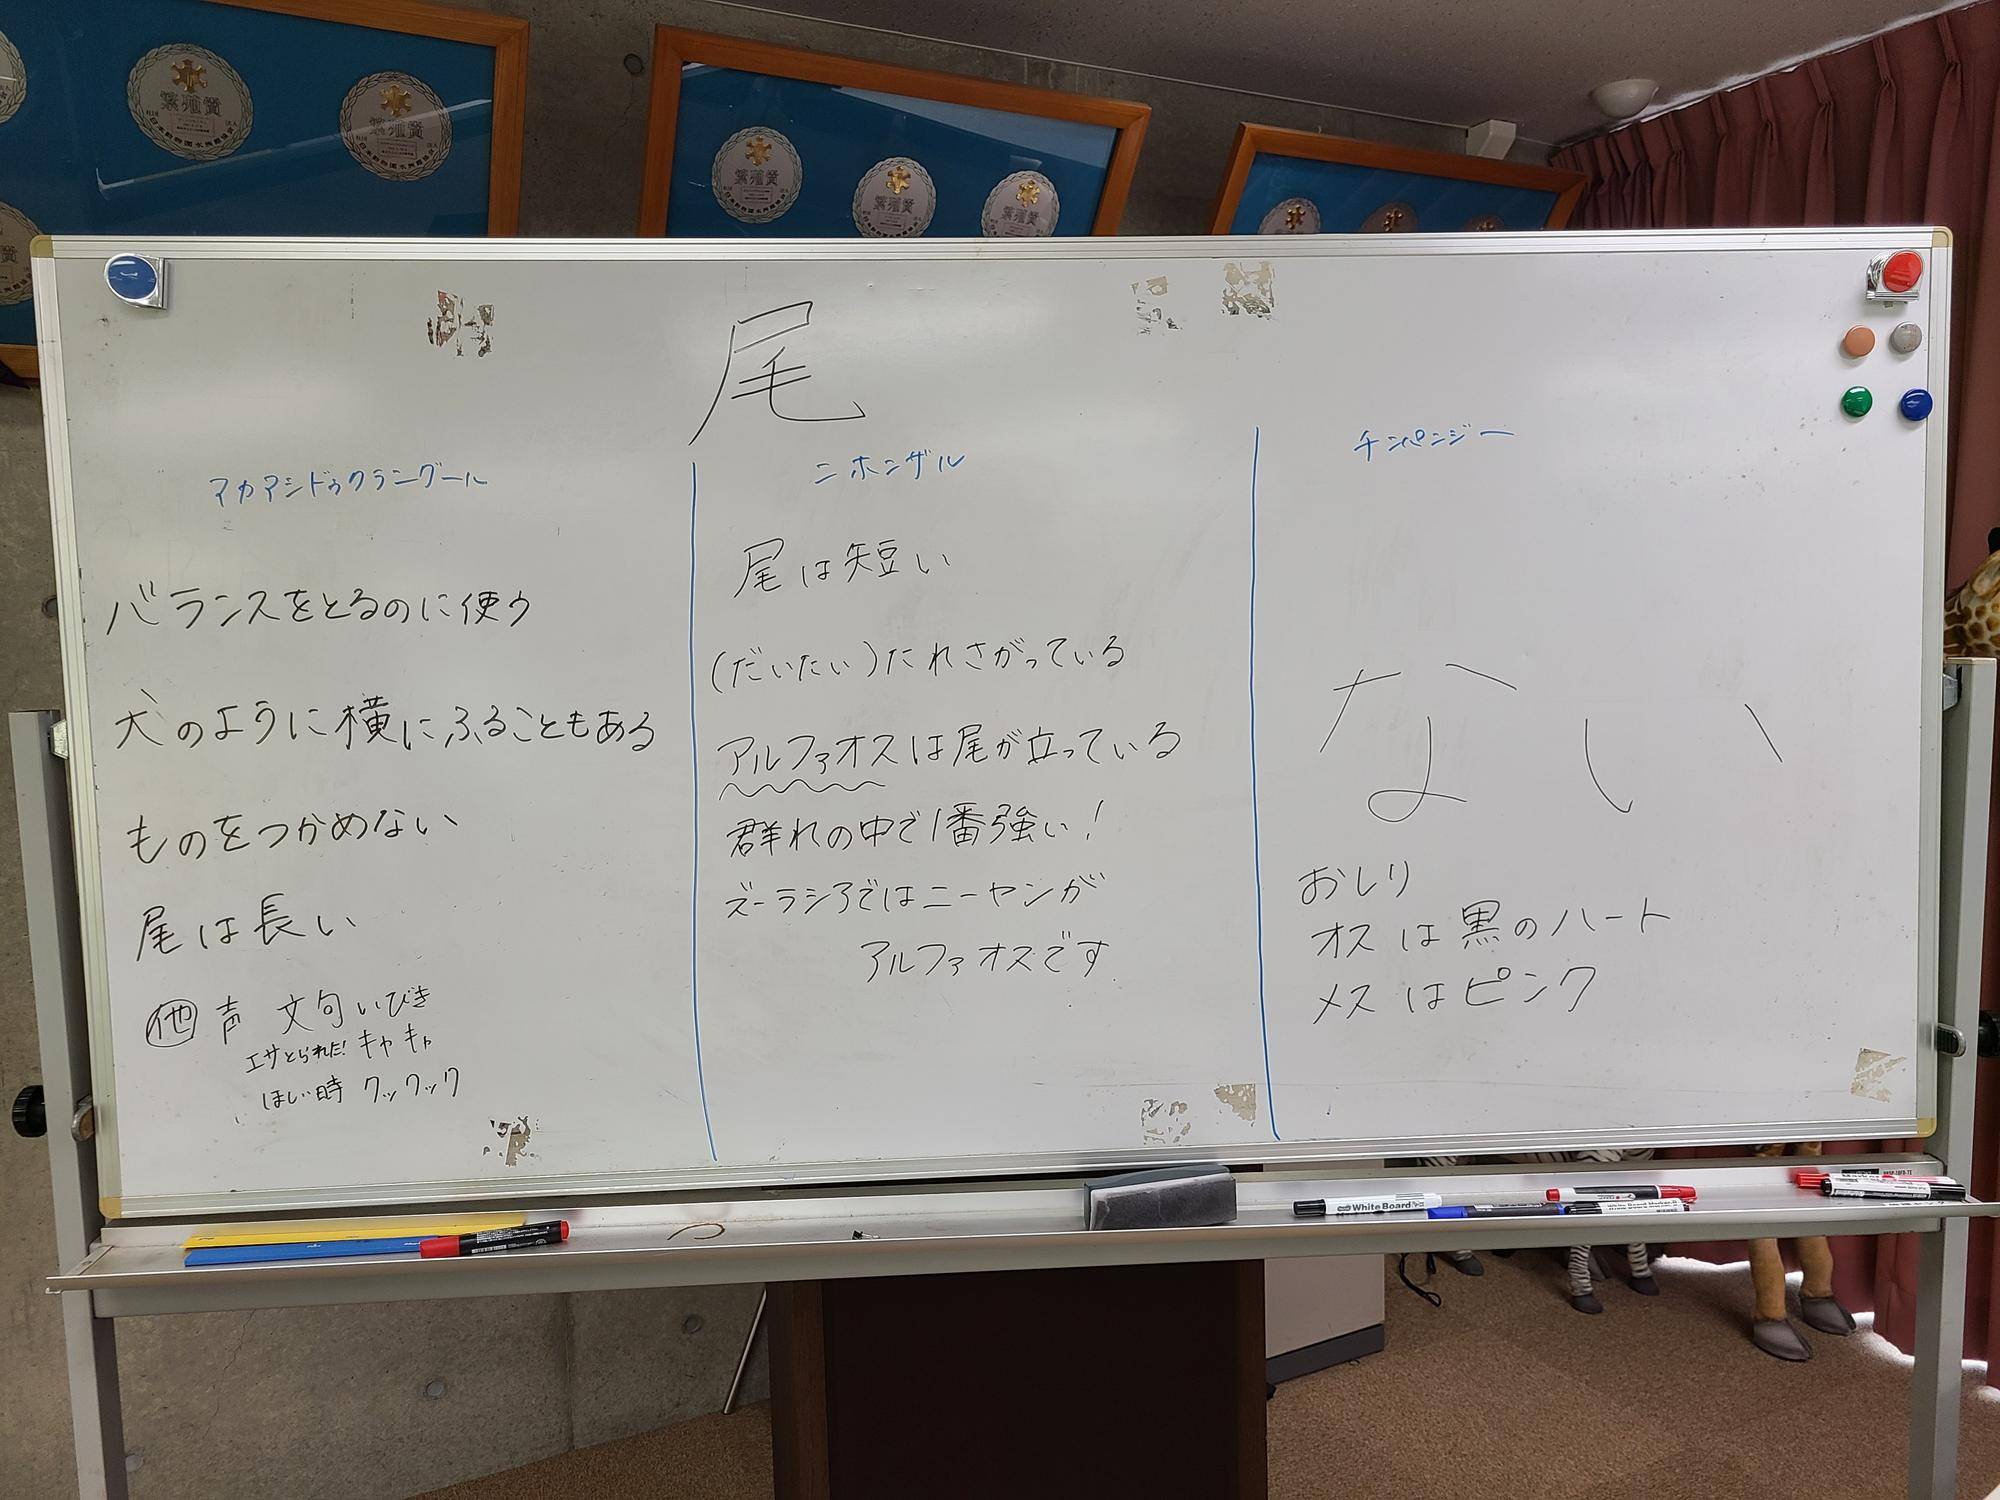 繁殖賞
繁殖賞
日本動物園水族館協会
繁殖賞
繁殖賞
繁殖賞
尾
アカアシドゥクラングール
バランスをとるのに使う
犬のように横にふることもある
ものをつかめない
尾は長い
他 声 文句 いびき
エサとられた! キャキャ
ほしい時 クックックッ
ニホンザル
尾は短い
(だいたい)たれさがっている
アルファオスは尾が立っている
群れの中で1番強い!
ズーラシアではニーヤンが
アルファオスです
チンパンジー
ない
おしり
オスは黒のハート
メスはピンク
White Board